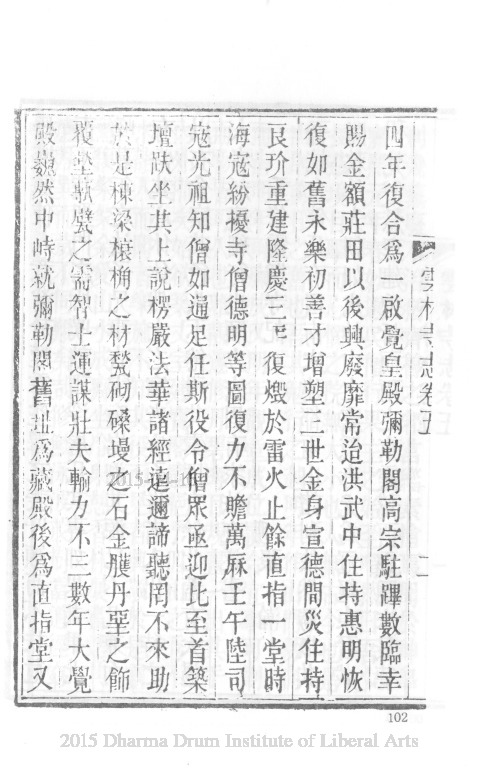 雲林寺志卷五 二
四年復合為一啟覺皇殿彌勒閣高宗駐蹕數臨幸
賜金額莊田以後興廢靡常迨洪武中住持惠明恢
復如舊永樂初善才增塑三世金身宣德間災住持
良玠重建隆慶三 復燬於雷火止餘直指一堂時
海寇紛擾寺僧德明等圖復力不贍萬厤壬午陸司
寇光祖知僧如通足任斯役令僧眾亟迎比至首築
壇趺坐其上說楞嚴法華諸經遠邇諦聽罔不來助
於是棟梁榱桷之材甃砌磉墁之石金雘丹堊之飾
覆墍 甓之需智士運謀壯夫輸力不三數年大覺
殿巍然中峙就彌勒閣舊址為藏殿後為直指堂又
102
2015 Dharma Drum Institute of Liberal Arts